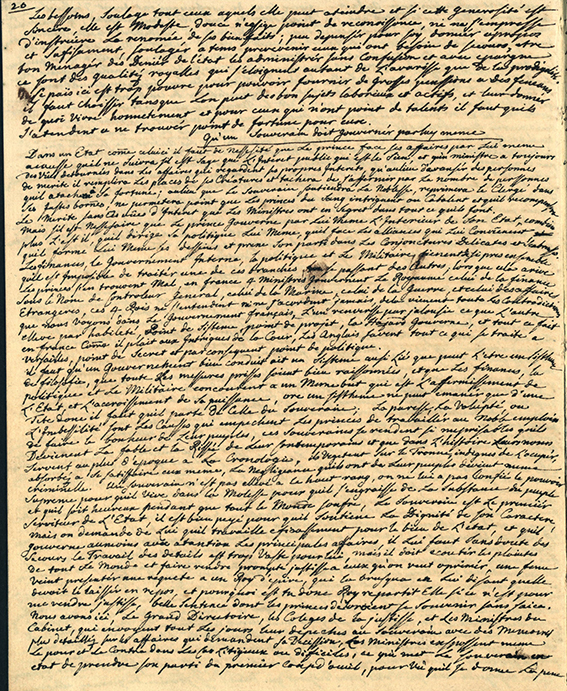 20
Les bessoins, Soulage tout ceux aquels elle peut ateindre et si cette generosité est
Ancore, elle est Modeste donce n'exige point de reconoissence, ni ne s'empresse
d'instruire La renomée de ses bienfaits; peu depensier pour soy donner apropos
et sufisament, soulager a tems prevevenir ceux qui ont besoin de secours, etre
bon Ménager des Deniers de l'etat les administrir sans Confusion et avec epargne
ce sont des qualités royalles qui s'eloignent autant de L'avarisse que de La prodigalité
Se païs ici est trop pauvre pour pouvoir fournir de grosses panssions a des feneans
il faut choissir tansque L'on peut des bon sujets laborieux et actifs, et leur donner
de quoi vivre honnetement et pour ceux qui n'ont point de talents il faut quils
S'atendent a ne trouver point de fortune pour eux.
Qu'un Souverain doit Gouvernér par luy meme
Dans un Etat come celuici il faut de nessesité que Le prince face ses affaires par Lui meme
acausse quil ne suivra s'il est Sage que L'interet publiq qui est le Sien, et qu'un ministre a toujours
des vues detournées dans les affaires qui regardent ses propres Interets, qu'aulieu d'avansér les persones
de merite il remplira les places de ses Creatures et tachera de s'affermir par Le nombre de persones
quil atachera a Sa fortune, aulieu que le Souverain soutiendra La Noblesse, reprimera le Clergé dans
les justes bornes, ne permetera point que Les princes du Sang intriguent ou Cabalent et quil recompensera
Le Merite sans ces vues d'Interet que Les Ministres ont en Segret dans tout ce quils font.
Mais s'il est Nessessaire que Le prince Gouverne par Lui Meme L'interieur de Son Etat, combien
plus L'est il quil dirige sa politique Lui Meme, quil face les alliances qui Lui Convienent
quil forme Lui Meme Ses desseins et prene Son parti dans Les Conjonctures Delicates et
Les finances, le Gouvernement Interne, la politique et Le Militaire Tienent de si pres ensemble
quil est impossible de traitér une de ces branches en se passant des autres, lorsque cela arive
Les princes s'en trouvent Mal, en france 4 Ministres Gouvernent Le Royaume, celui de la finance
Sous le Nom de Controleur General, celui de La Marine, celui de la Guerre, et celui des affaires
Etrangeres, ces 4 Rois ne s'entendent ni ne s'acordent jamais, delà vienent toutes Les Contradictions
que nous voyons dans Le Gouvernement françois, L'un renversse par jalousie ce que L'autre
eleve par habileté, Point de Sisteme, point de projet, Le Hazard Gouverne, et tout ce fait
en france come il plait aux Intrigues de la Cour. Les Anglais savent tout ce qui se traite a
Versailles, point de Secret et par conséquent point de politique.
il faut qu'un Gouvernement bien conduit ait un Sisteme aussi Lié que peut L'etre un sisteme
de filosofie, que toutes Les messures prisses soient bien raissonnées, et que Les finances, la
politique et Le Militaire concourent a un Meme but qui est L'affermissement de
L'Etat, et L'accroissement de Sa puissance, ore un sistheme ne peut emaner que d'une
Tete donc il faut quil parte de Celle du Souverain; La paresse, La Volupté, ou
L'Imbessilité sont les Causses qui empechent Les princes de travaillér au Noble employ
de faire le bonheur de Leur peuples, ces Souverains se rendent si meprisables quils
Devienent La fable et La Rissée de Leur Contemporains et que dans L'histoire Leurs noms
servent au plus d'epoque a La Cronologie, ils vegetent sur le Tronne, indignes de L'ocupér,
absorbés a se satisfaire eux meme, La Negligence quils ont de Leur peuples devient meme
Criminelle. Un souverain n'est pas elevé a Ce haut rang, on ne lui a pas Confié le pouvoir
supreme pour quil vive dans la Molesse pour quil s'engraisse de La Substance du peuple
et quil soit heureux pendant que tout Le Monde soufre, Le Souverain est Le premiér
Serviteur de L'Etat, il est bien payé pour quil soutiene La Dignité de Son Caractere
mais on demande de Lui quil travaille efficassement pour le bien de L'etat, et quil
Gouverne aumoins avec atention Les principales affaires, il Lui faut Sans doute des
Secours, Le Travail des detaills est trop Vaste pour lui, mais il doit ecoutér les plaintes
de tout Le Monde et faire rendre promte justisse a ceux qu'on veut oprimér, une feme
veint presentér une requete a un Roy d'Epire, qui La brusqua en Lui dissant quelle
devoit le laissér en repos, et pourquoi est tu donc Roy repartit Elle si ce n'est pour
me rendre justisse, belle Sentence dont les princes devroient se Souvenir sans saice.
Nous avons ici, Le Grand Directoire, les Coleges de la justisse, et Les Ministres du
Cabinet, qui envoyent tout Le jours leur depeches au Souverain avec des Memoires
plus detailles sur les affaires qui demandent sa Dession. Les Ministres exposent meme
Le pour et Le Contre dans Les cas Litigieux ou difficiles, ce qui met Le Souverain en
etat de prendre son parti du premier Coup d'œuil, pour vu quil se done La pene